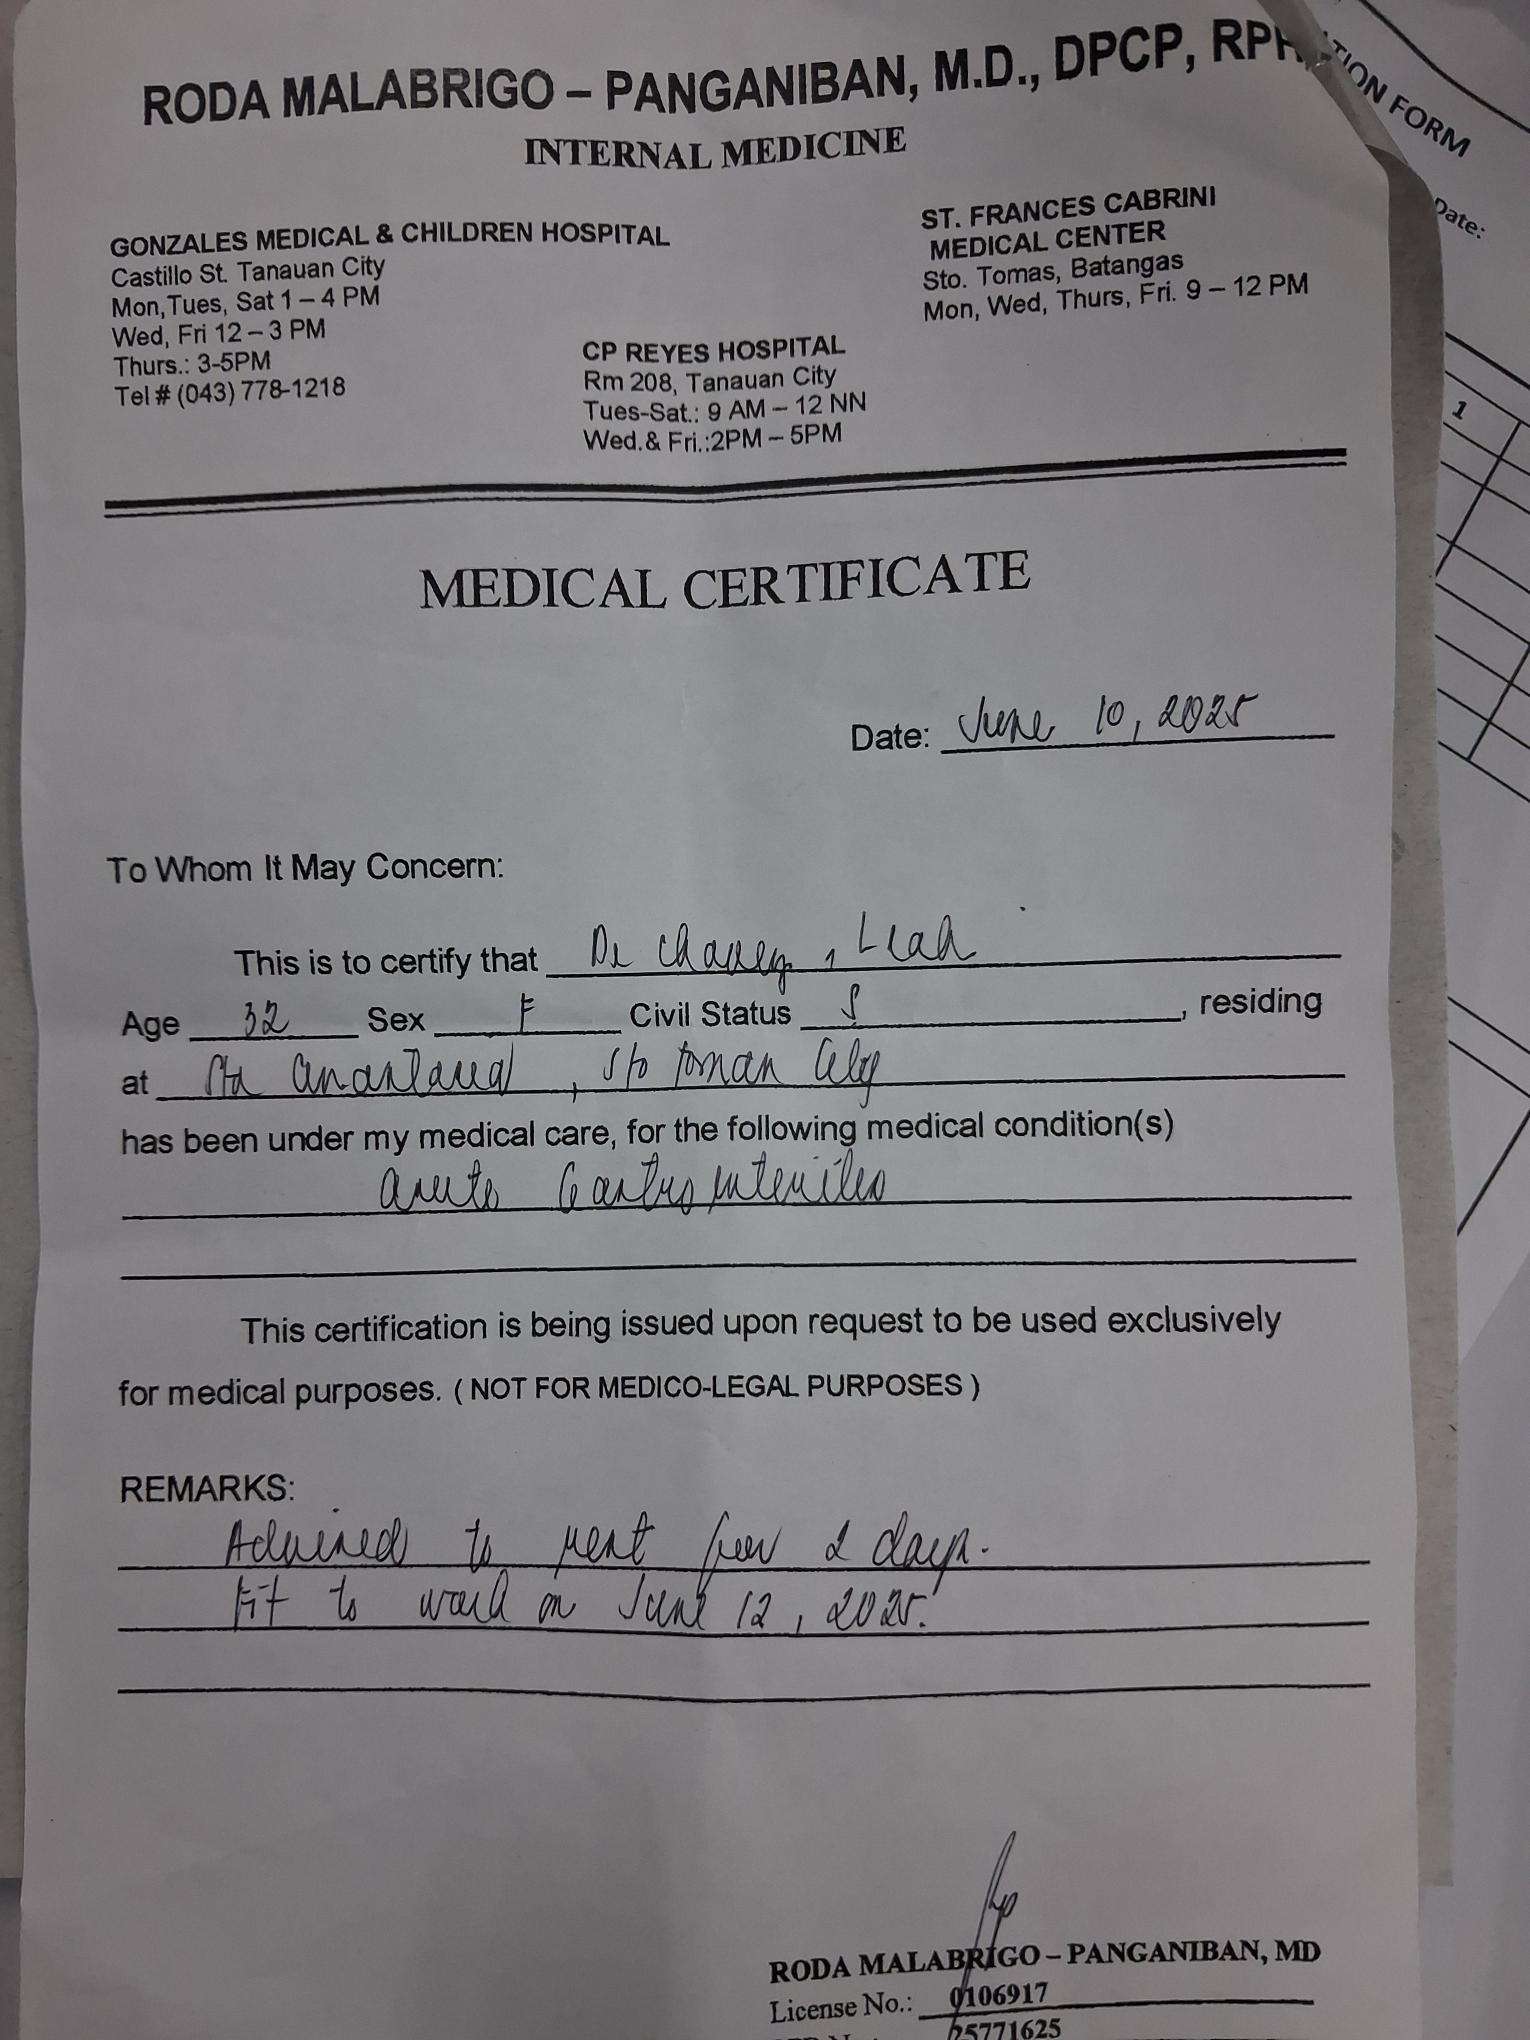 RODA MALABRIGO – PANGANIBAN, M.D., DPCP, RPH
INTERNAL MEDICINE
GONZALES MEDICAL & CHILDREN HOSPITAL
Castillo St. Tanauan City
Mon,Tues, Sat 1 – 4 PM
Wed, Fri 12 – 3 PM
Thurs.: 3-5PM
Tel # (043) 778-1218
CP REYES HOSPITAL
Rm 208, Tanauan City
Tues-Sat.: 9 AM – 12 NN
Wed.& Fri.:2PM – 5PM
ST. FRANCES CABRINI
MEDICAL CENTER
Sto. Tomas, Batangas
Mon, Wed, Thurs, Fri. 9 – 12 PM
MEDICAL CERTIFICATE
Date: June 10, 2025
To Whom It May Concern:
This is to certify that De Chavez, Leah
Age 32 Sex F Civil Status S, residing
at Sta , Sto Tomas City
has been under my medical care, for the following medical condition(s)
Acute Gastroenteritis
This certification is being issued upon request to be used exclusively
for medical purposes. ( NOT FOR MEDICO-LEGAL PURPOSES )
REMARKS:
Advised to rest for 2 days.
Fit to work on June 12, 2025.
RODA MALABRIGO – PANGANIBAN, MD
License No.: 0106917
25771625
TION FORM
Date:
1